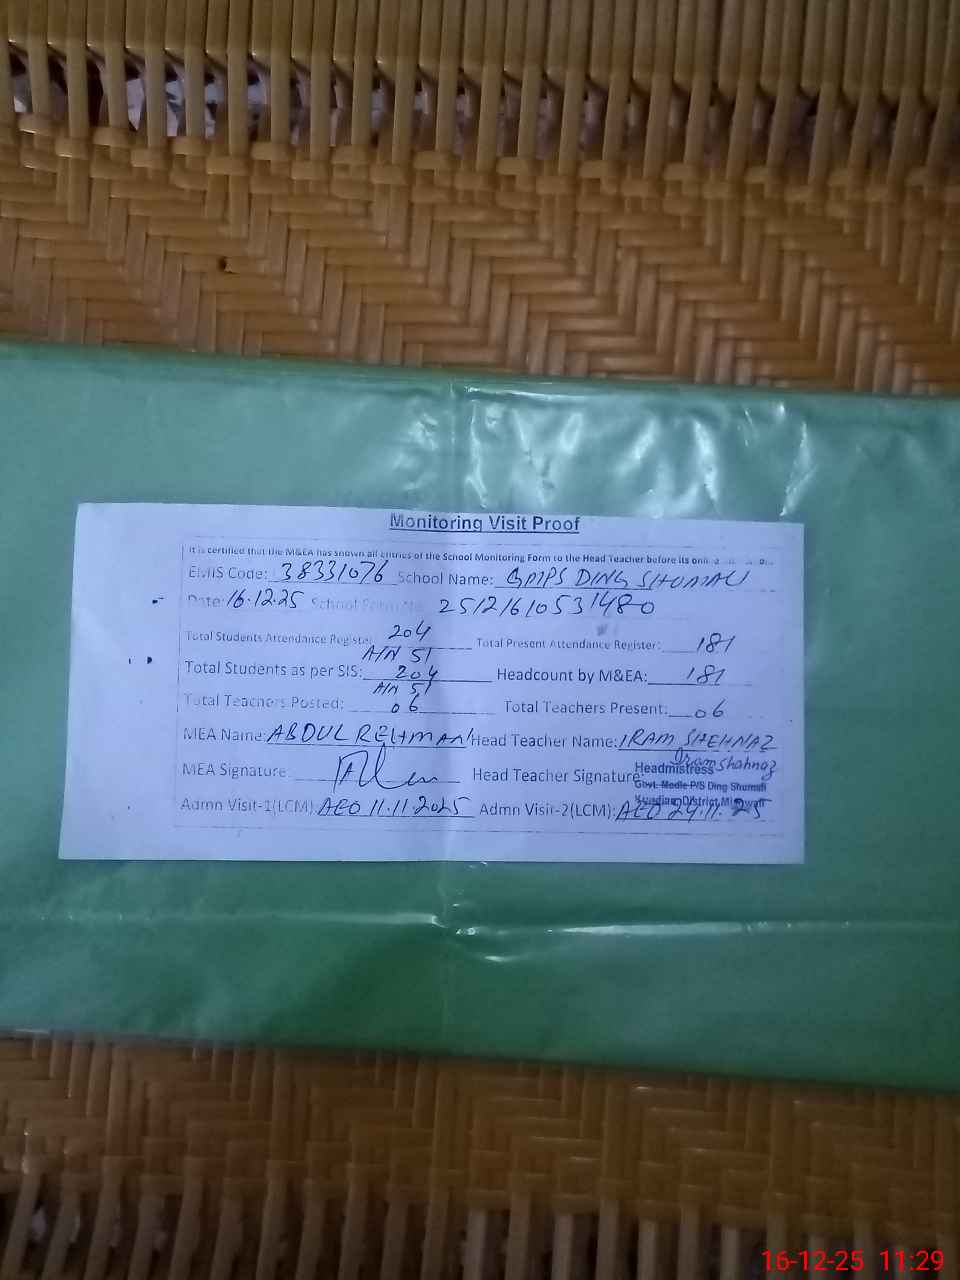 Monitoring Visit Proof
It is certified that the M&EA has shown all entries of the School Monitoring Form to the Head Teacher before its
EMIS Code: 38331076 School Name: GMPS DING SHUMALI
Date: 16.12.25 School Form No: 2512161053 1480
Total Students Attendance Register 204 Total Present Attendance Register: 181
A/N 51
Total Students as per SIS: 204 Headcount by M&EA: 181
A/N 51
Total Teachers Posted: 06 Total Teachers Present: 06
MEA Name: ABDUL REHMAN Head Teacher Name: IRAM SHEHNAZ
MEA Signature: Head Teacher Signature: Iram Shahnaz
Headmistress
Govt. Modle P/S Ding Shumali
Kundian District Mianwali
Admn Visit-1(LCM): AEO 11.11.2025 Admn Visit-2(LCM): AEO 24.11.25
16-12-25 11:29